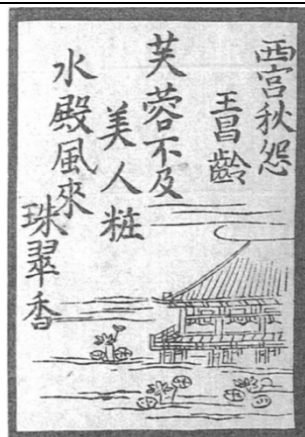 西宮秋怨
王昌齡
芙蓉不及
美人粧
水殿風來
珠翠香